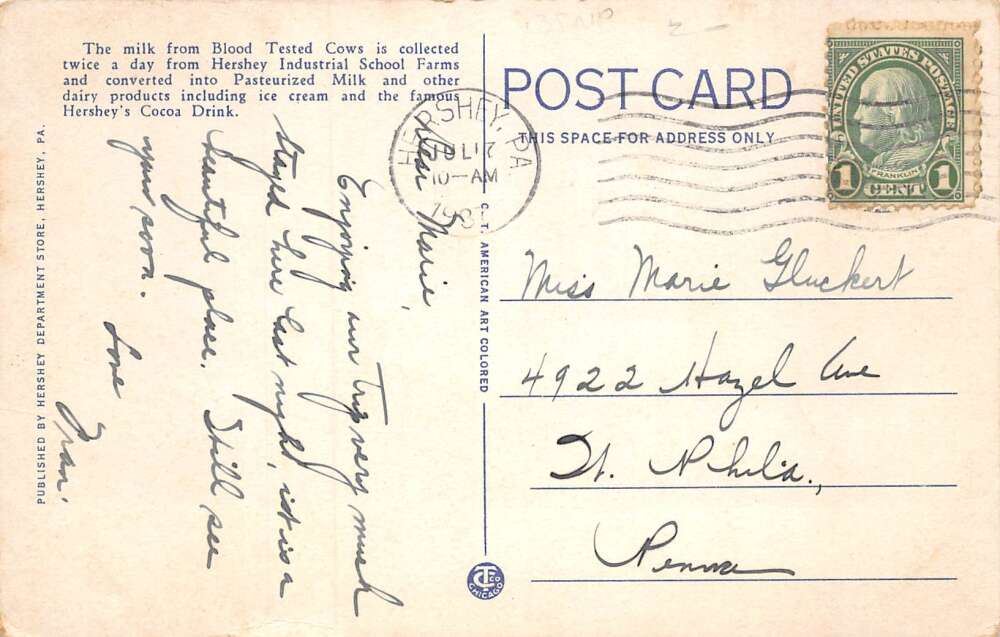 The milk from Blood Tested Cows is collected
twice a day from Hershey Industrial School Farms
and converted into Pasteurized Milk and other
dairy products including ice cream and the famous
Hershey's Cocoa Drink.
PUBLISHED BY HERSHEY DEPARTMENT STORE, HERSHEY, PA.
Dear Marie,
Enjoying our trip very much
stayed here last night, it is a
beautiful place. Still see
you soon.
Love
Fran.
C. T. AMERICAN ART COLORED
CT CO
CHICAGO
POST CARD
THIS SPACE FOR ADDRESS ONLY
HERSHEY, PA
JUL 17
10-AM
UNITED STATES POSTAGE
FRANKLIN
1 CENT 1
Miss Marie Gluckert
4922 Hazel Ave
W. Phila.,
Penna